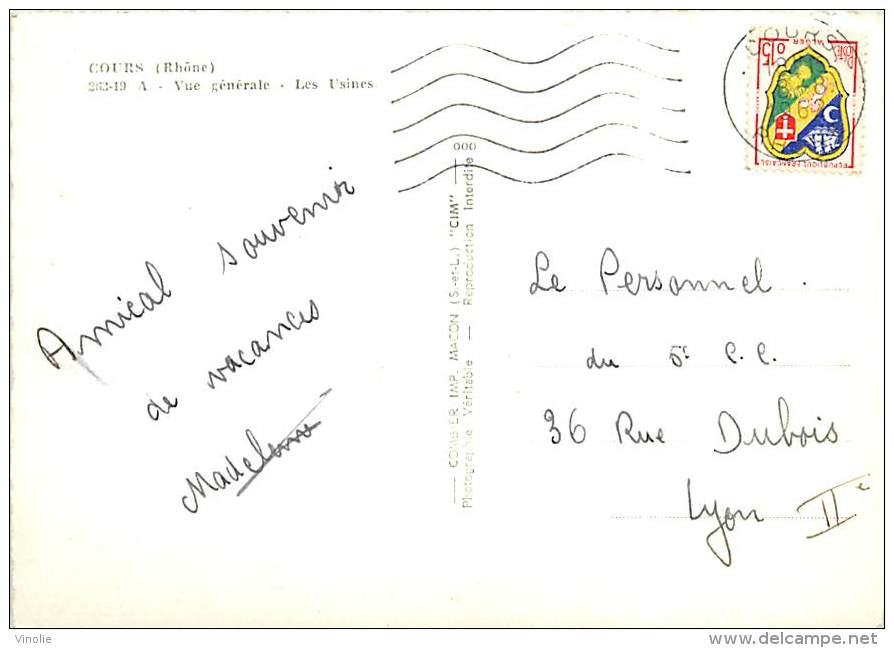 COURS (Rhône)
263-19 A - Vue générale - Les Usines
Amical souvenir
de vacances
Madeleine
COMBIER IMP. MACON (S.-et-L.) "CIM" 000
Photographie Véritable — Reproduction Interdite
COURS
0,15
POSTES
ALGER
REPUBLIQUE FRANÇAISE
Le Personnel
du 5e C.C.
36 Rue Dubois
Lyon IIe
Vinolie
www.delcampe.net